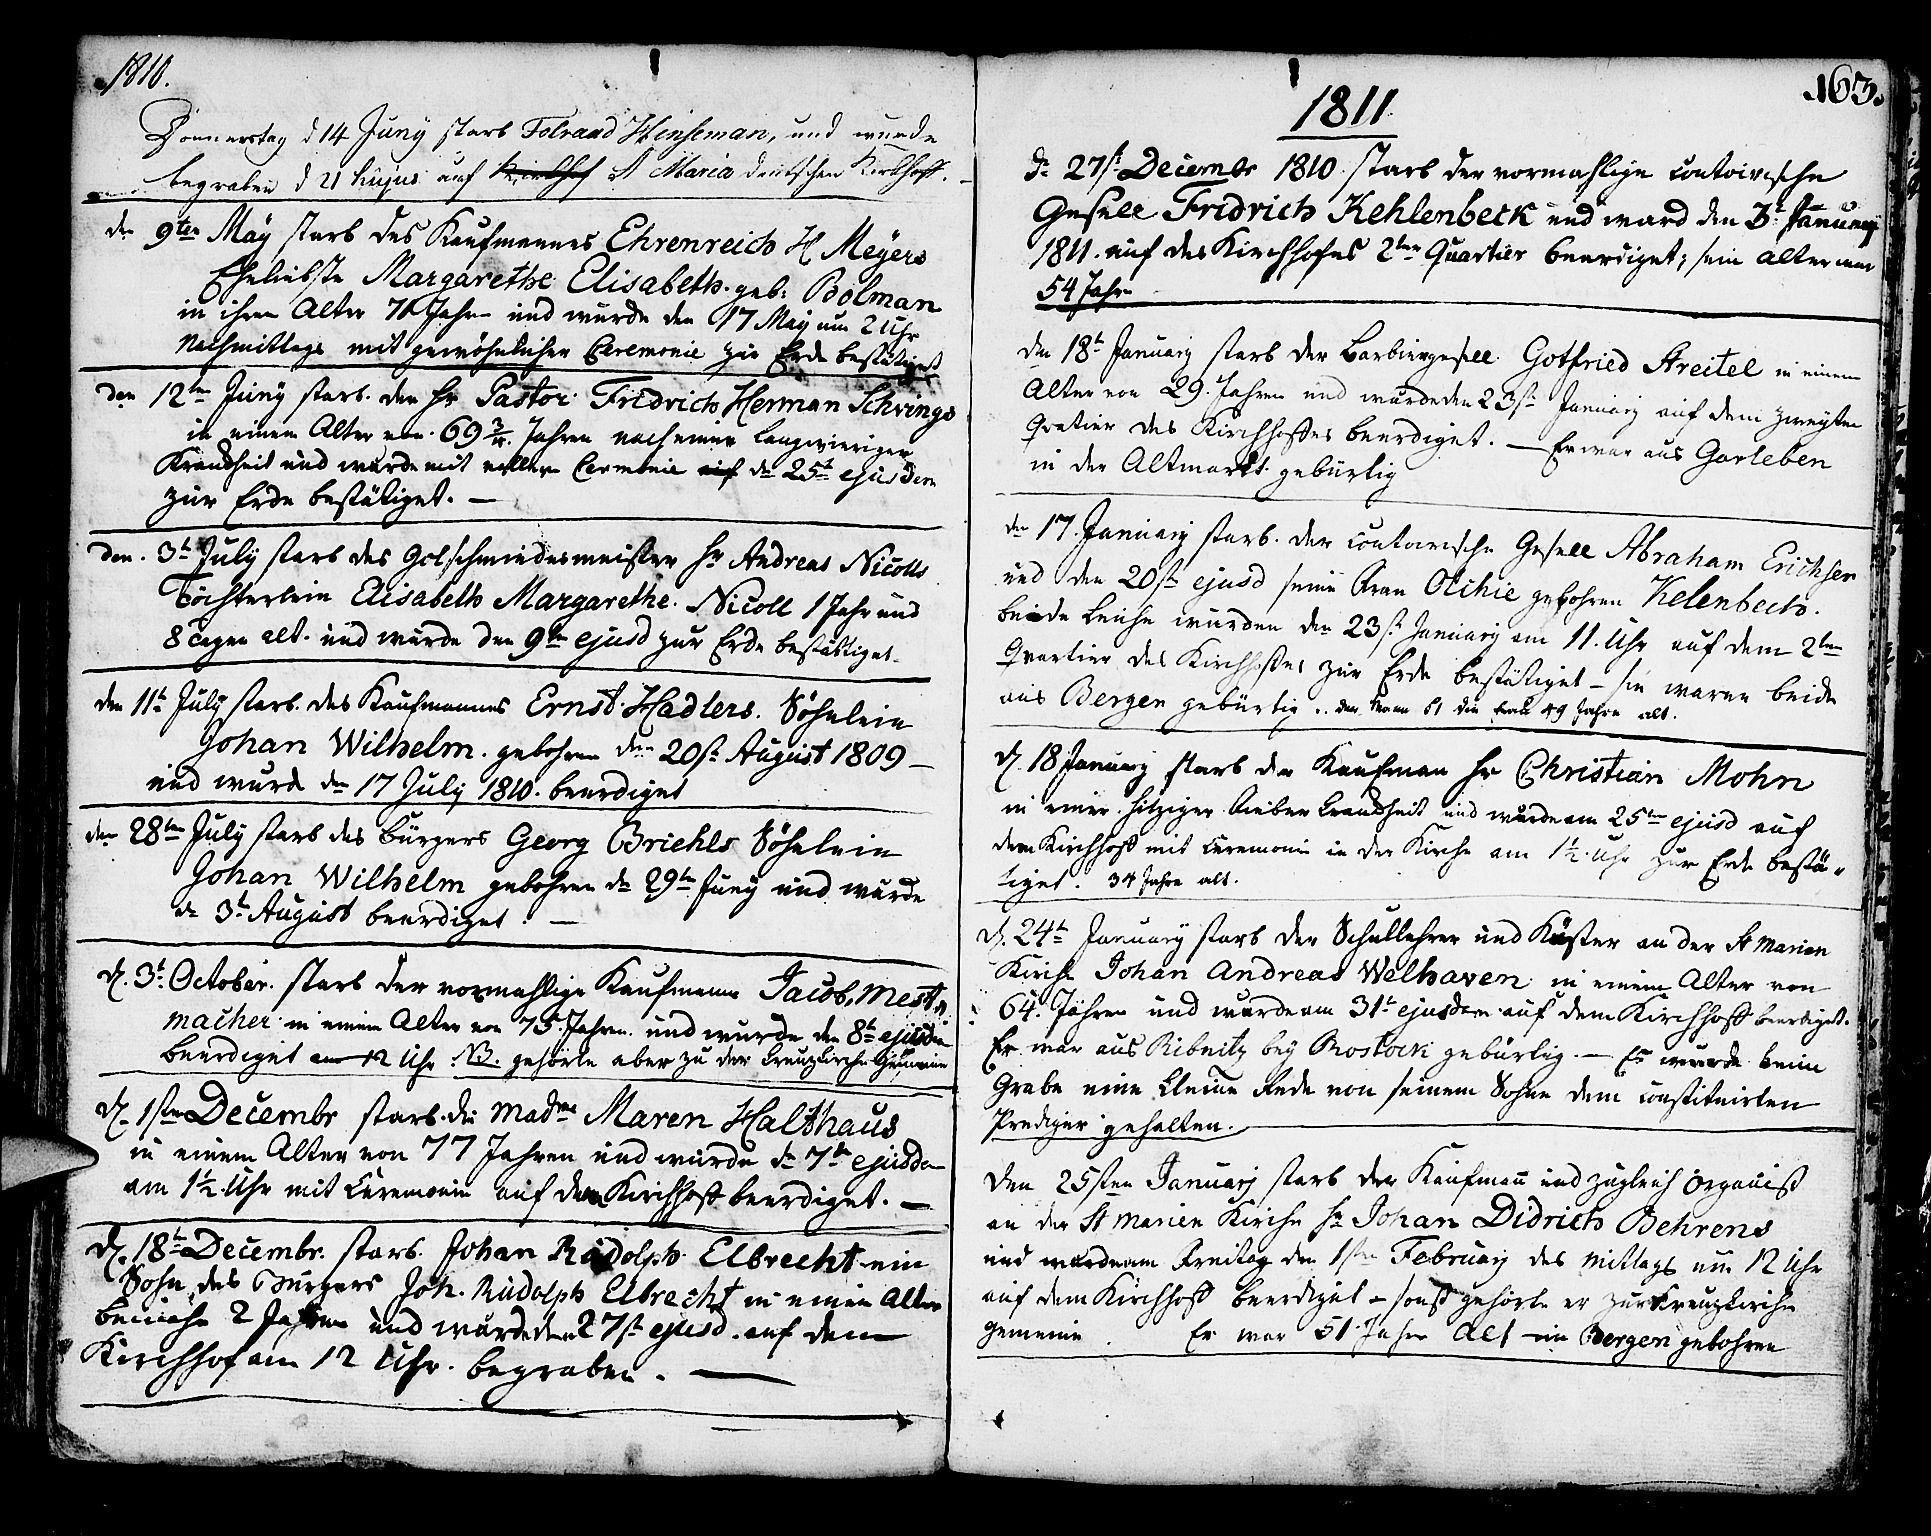 1810.
Donnerstag d 14 Juny starb Folraad Hinseman, und wurde
begraben d 21 hujus auf Kirchhof St Maria deutschen Kirchhoff.
den 9ten May starb des Kaufmannes Ehrenreich H Meyers
Eheliebste Margarethe Elisabeth geb: Bolman
in ihren Alter 71 Jahr und wurde den 17 May um 2 Uhr
Nachmittags mit gewöhnlicher Ceremonie zur Erde bestätiget
den 12ten Juny starb der Hr Pastor Fridrich Herman Schrings
in einem Alter von 69 3/4 Jahren nach einer langwieriger
Krankheit und wurde mit voller Cermonie auf d 25t ejusdem
zur Erde bestätiget. —
den 3t July starb des Golschmiedesmeister Hr Andreas Nicolls
Töchterlein Elisabeth Margarethe Nicoll 1 Jahr und
8 tagen alt. und wurde den 9ten ejusd zur Erde bestätiget.
den 11t July starb des Kaufmannes Ernst Hadlers Söhnlein
Johan Wilhelm gebohren den 20st August 1809 —
und wurd den 17 July 1810 beerdiget
den 28ten July starb des Bürgers Georg Briehls Söhnlein
Johan Wilhelm gebohren d 29ten Juny und wurde
d 3t August beerdiget. —
d. 3t October starb der vormahlige Kaufmann Jacob Mest„
macher in einem Alter von 75 Jahren und wurde den 8t ejusdem
beerdiget um 12 Uhr. NB. gehörte aber zu der Creuzkirche Gemeine
d. 1sten Decembr starb die Madme Maren Halthaus
in einem Alter von 77 Jahren und wurde d 7ten ejusdem
um 1 1/2 Uhr mit Ceremonie auf dem Kirchhoff beerdiget. —
d. 18ten Decembr. starb Johan Rudolph Elbrecht ein
Sohn des Bürgers Joh. Rudolph Elbrecht in einem Alter
beinahe 2 Jahren und wurde den 27st ejusd. auf dem
Kirchhof um 12 Uhr begraben. —
163.
1811
d 27st Decembr 1810 starb der vormahlige contoirische
Gesell Fridrich Kehlenbeck und ward den 3t Januarij
1811. auf des Kirchhofes 2ten Quartier beerdiget; sein alter war
54 Jahr
den 18t Januarij starb der Barbiergesell Gotfried Streitel in einem
Alter von 29. Jahren und wurde den 23st Januarij auf dem zweyten
Qvatier des Kirchhoffes beerdiget. — Er war aus Garleben
in der Altmarkt gebürtig
den 17. Januarij starb der contoirische Gesell Abraham Erichsen
und den 20st ejusd seine Frau Olchie gebohren Kelenbech.
beide Leiche wurden den 23st Januarij um 11. Uhr auf dem 2ten
Qvartier des Kirchhoffes zur Erde bestätiget — sie waren beide
aus Bergen gebürtig .. der Mann 61 die Frau 49 Jahre alt.
d. 18 Januarij starb der Kaufman Hr Christian Mohn
in einer hitziger Fieber krankheit und wurde am 25ten ejusd auf
dem Kirchhoff mit Ceremonie in der Kirche um 1 1/2 Uhr zur Erde bestä„
tiget. 34 Jahre alt.
d. 24t Januarij starb der Schullehrer und Küster an der St Marien
Kirche Johan Andreas Welhaven in einem Alter von
64. Jahren und wurde am 31t ejusdem auf dem Kirchhoff beerdiget.
Er war aus Ribnitz bey Rostock gebürtig. — Es wurde beim
Grabe eine kleine Rede von seinem Sohne dem constituirten
Prediger gehalten.
Den 25sten Januarj starb der Kaufmann und zugleich Organist
an der St Marien Kirche Hr Johan Didrich Behrens
und wurde am Freitag den 1sten Februarij des Mittags um 12 Uhr
auf dem Kirchhoff beerdiget — sonst gehörte er zur Kreuzkirche
gemeine. Er war 51 Jahr Alt in Bergen gebohren